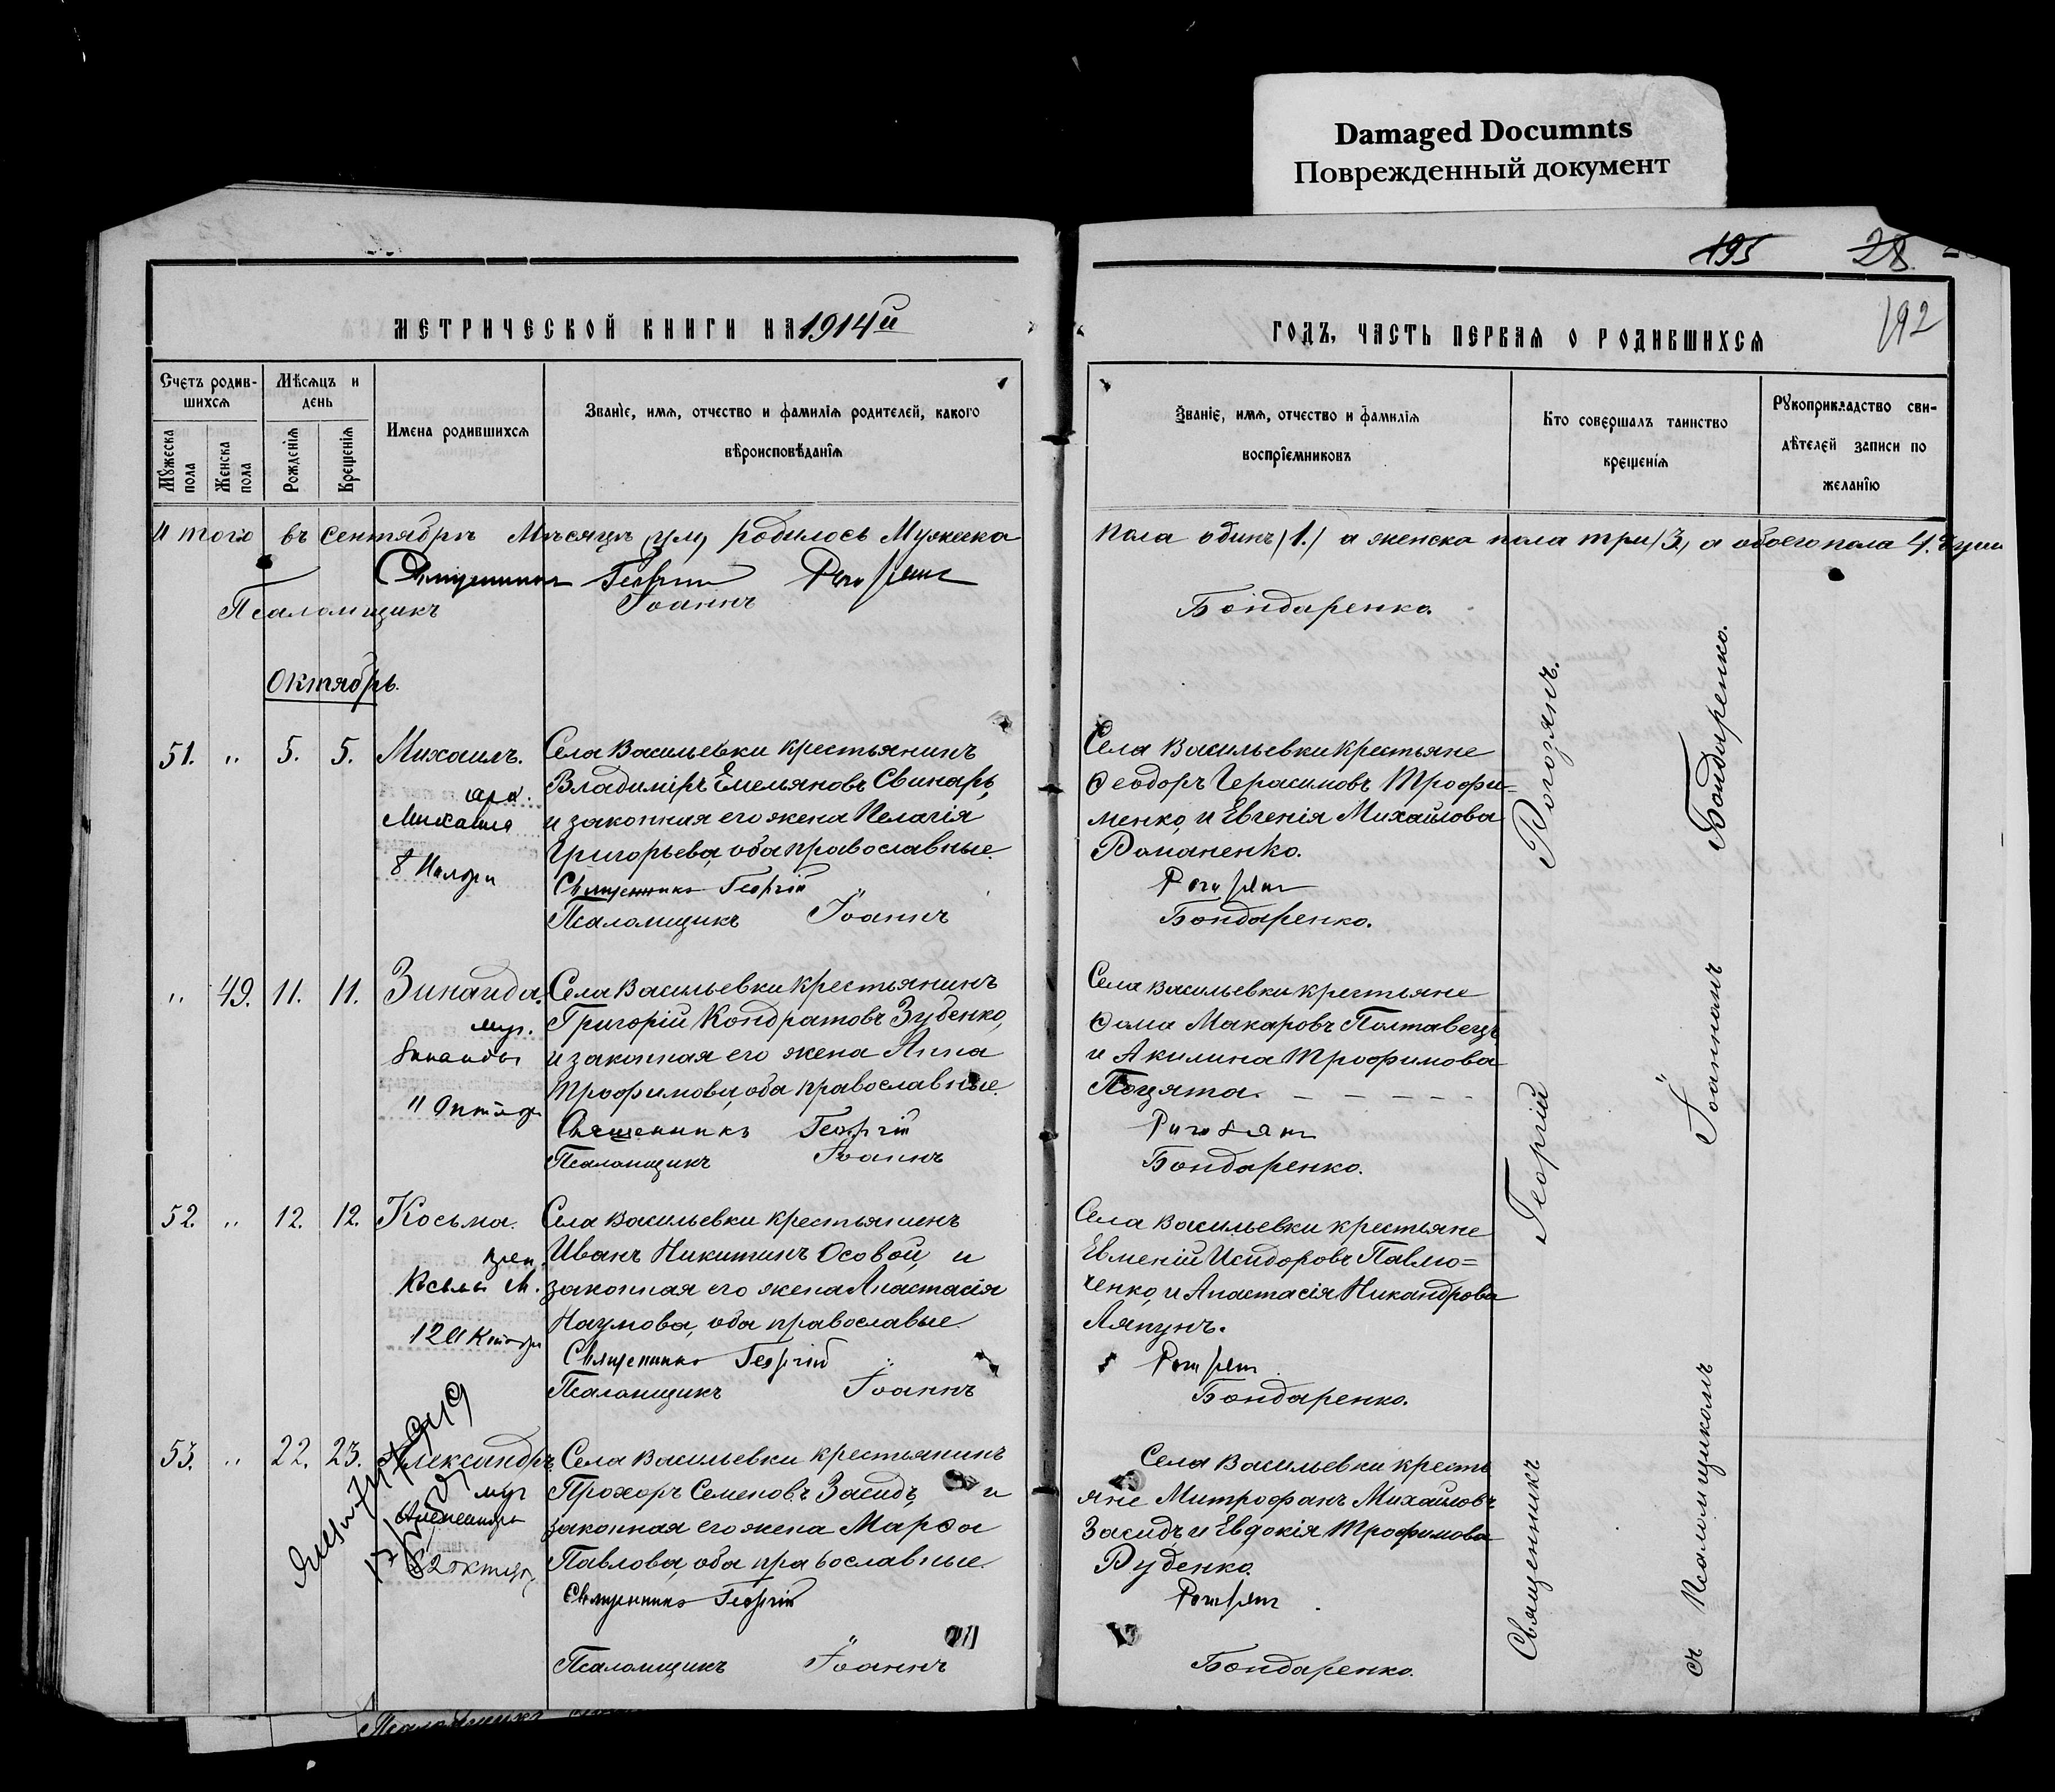 Damaged Documnts
Поврежденный документ
195
28.
192
МЕТРИЧЕСКОЙ КНИГИ НА 1914й
Счетъ родив-
шихся
Мѣсяцъ и
день
Мужеска
пола
Женска
пола
Рожденія
Крещенія
Имена родившихся
Званіе, имя, отчество и фамилія родителей, какого
вѣроисповѣданія
Итого въ Сентябрѣ Мѣсяцѣ родилось Мужеска
Священникъ Георгій Рогозянъ
Псаломщикъ Іоаннъ
Октябрь.
51. " 5. 5. Михаилъ.
арх.
Михаила
8 Ноября
Села Васильевки крестьянинъ
Владиміръ Емельяновъ Свинарь,
и законная его жена Пелагія
Григорьева, оба православные.
Священникъ Георгій
Псаломщикъ Іоаннъ
" 49. 11. 11. Зинаида.
муч.
Зинаиды
11 Октября
Села Васильевки крестьянинъ
Григорій Кондратовъ Зубенко,
и законная его жена Анна
Трофимова, оба православные.
Священникъ Георгій
Псаломщикъ Іоаннъ
52. " 12. 12. Косьма.
преп.
Косьмы М.
12 Октября
Села Васильевки крестьянинъ
Иванъ Никитинъ Осовой, и
законная его жена Анастасія
Наумова, оба православые
Священникъ Георгій
Псаломщикъ Іоаннъ
53. " 22. 23. Александръ.
муч
Александра
22 октября
Села Васильевки крестьянинъ
Прохоръ Семеновъ Засидъ, и
законная его жена Марѳа
Павлова, оба православные.
Священникъ Георгій
Псаломщикъ Іоаннъ
ГОДЪ, ЧАСТЬ ПЕРВАЯ О РОДИВШИХСЯ
Званіе, имя, отчество и фамилія
воспріемниковъ
Кто совершалъ таинство
крещенія
Рукоприкладство сви-
дѣтелей записи по
желанію
пола одинъ /1./ а женска пола три /3./, а обоего пола 4. души
Бондаренко.
Села Васильевки крестьяне
Ѳеодоръ Герасимовъ Трофи=
менко, и Евгенія Михайлова
Романенко.
Рогозянъ
Бондаренко.
Села Васильевки крестьяне
Ѳома Макаровъ Полтавецъ
и Акилина Трофимова
Поцята. - - - - -
Рогозянъ
Бондаренко.
Села Васильевки крестьяне
Евменій Исидоровъ Павлю=
ченко, и Анастасія Никандрова
Ляпунъ.
Рогозянъ
Бондаренко.
Села Васильевки кресть
яне Митрофанъ Михайловъ
Засидъ и Евдокія Трофимова
Руденко.
Рогозянъ
Бондаренко.
Священникъ Георгій Рогозянъ.
съ Псаломщикомъ Іоанномъ Бондаренко.